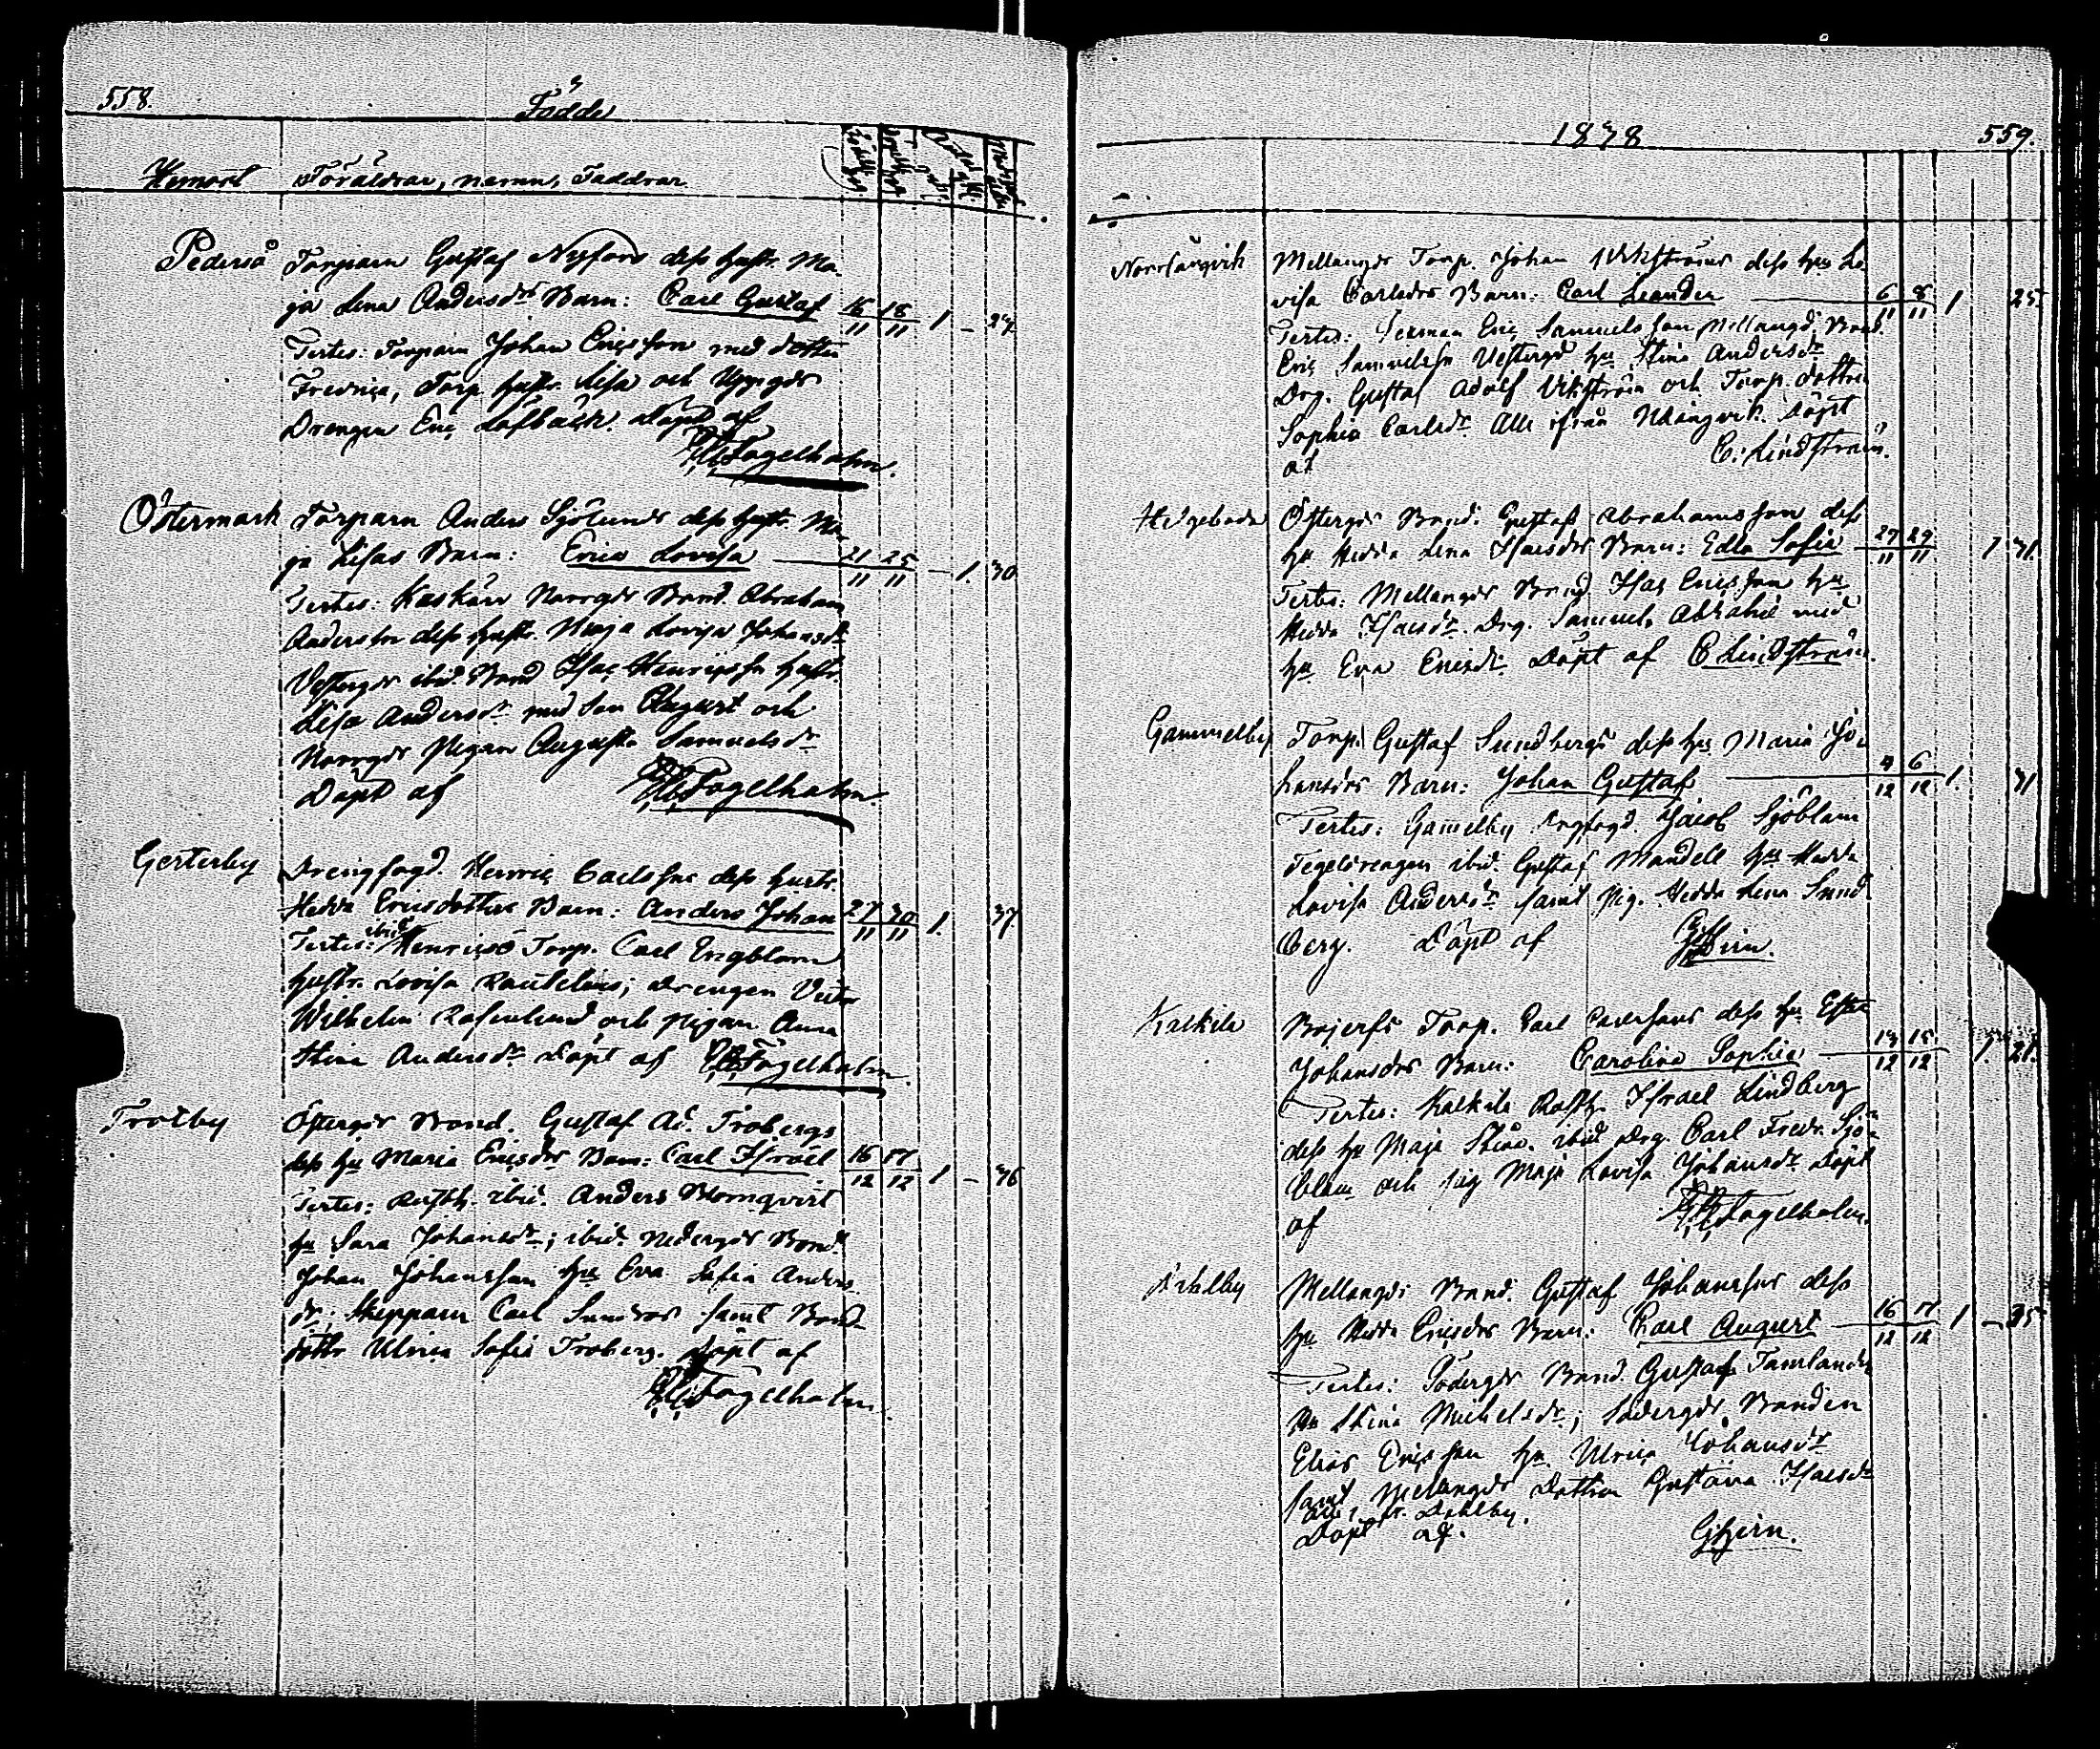 558.
Födde
Hemort Föräldrar, namn, Faddrar.
Pederså Torparn Gustaf Nyfors dess hustr. Ma-
ja Lena Andersdrs Barn: Carl Gustaf 16/11 18/11 1 – 27.
Testes: Torparn Johan Ericsson med dottren
Fredrica, Torp. hustr. Lisa och Uppgds
Drengen Eric Löfbäck. Döpt af
Fogelholm.
Östermark Torparn Anders Sjölunds dess hustr. Ma-
ja Lisas Barn: Erica Lovisa 21/11 25/11 – 1. 30
Testes: Kaskärr Norrgds Bond. Abraham
Andersson dess hustr. Maja Lovisa Johansdr
Vestergds ibid. Bond Isac Henricsson hustr.
Lisa Andersdr med Son August och
Norrgds Pigan Augusta Samuelsdr
Döpt af Fogelholm.
Gesterby Drengfogd. Henric Carlssons dess hustr.
Hedda Ericsdotters Barn: Anders Johan 27/11 30/11 1. 37.
Testes: ibid Torp. Carl Engblom
hustr. Lovisa; Drengen
Wilhelm Rosenlund och Pigan Anna
Stina Andersdr Döpt af Fogelholm.
Trotby Östergds Bond. Gustaf Ad. Trobergs
dess hu Maria Ericsdrs Barn: Carl Israel 16/12 17/12 1 – 36
Testes: Rusth. ibid. Anders Blomqvist
hu Sara Johansdr; ibid. Nedergds Bond.
Johan Johansson hu Eva Sofia Anders
dr; Skepparn Carl Sundros samt Bond
dottr Ulrica Sofia Troberg. Döpt af
Fogelholm.
1878 559.
Norrlångvik Mellangds Torp. Johan Vikströms dess hu Lo-
visa Carlsdrs Barn: Carl Leander 6/11 8/11 1 25.
Testes: Sexman Eric Samuelsson Mellangd; Bond.
Eric Samuelsson Vestergd hu Stina Andersdr
Drg. Gustaf Adolf Vikström och Torp. dottren
Sophia Carlsdr Alla ifrån Nlångvik. Döpt
af C. Lindström.
Helgeboda Östergds Bond. Gustaf Abrahamsson dess
hu Hedda Lena Isacsdrs Barn: Edla Sofia 27/11 29/11 1 31.
Testes: Mellangds Bond Isac Ericsson hu
Hedda Isacsdr. Drg. Samuel med
hu Eva Ericsdr. Döpt af C Lindström.
Gammelby Torp. Gustaf Sundbergs dess hu Maria Jo-
hansdrs Barn: Johan Gustaf 4/12 6/12 1. 31
Testes: Gamelby Drgfogd. Jacob Sjöblom
Tegeldrengen ibid. Gustaf Mandell hu Hedda
Lovisa Andersdr samt Pig. Hedda Lena Sund
berg. Döpt af Hirn.
Kalkila Torp. Carl Carlssons dess hu Ester
Johansdrs Barn: Carolina Sophia 13/12 15/12 1. 21.
Testes: Kalkila Rusth. Israel Lindberg
dess hu Maja Stina. ibid Drg. Carl Fredr. Sjö-
blom och pig Maja Lovisa Johansdr Döpt
af Fogelholm.
Mellangds Bond. Gustaf Johanssons dess
hu Hedda Ericsdrs Barn: Carl August 16/12 17/12 1 – 35
Testes: Södergds Bond. Gustaf
hu Stina Michelsdr; Södergds Bonden
Elias Ericsson hu Ulrica Johansdr
samt Mellangds Dottren Gustava Isacsdr
alla fr. Dahlby.
Döpt af. Hirn.